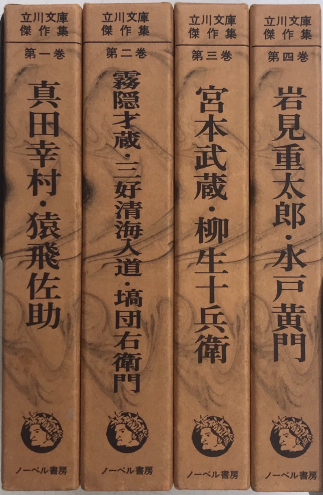 立川文庫
傑作集
第一巻
真田幸村・猿飛佐助
ノーベル書房
立川文庫
傑作集
第二巻
霧隠才蔵・三好清海入道・塙団右衛門
ノーベル書房
立川文庫
傑作集
第三巻
宮本武蔵・柳生十兵衛
ノーベル書房
立川文庫
傑作集
第四巻
岩見重太郎・水戸黄門
ノーベル書房